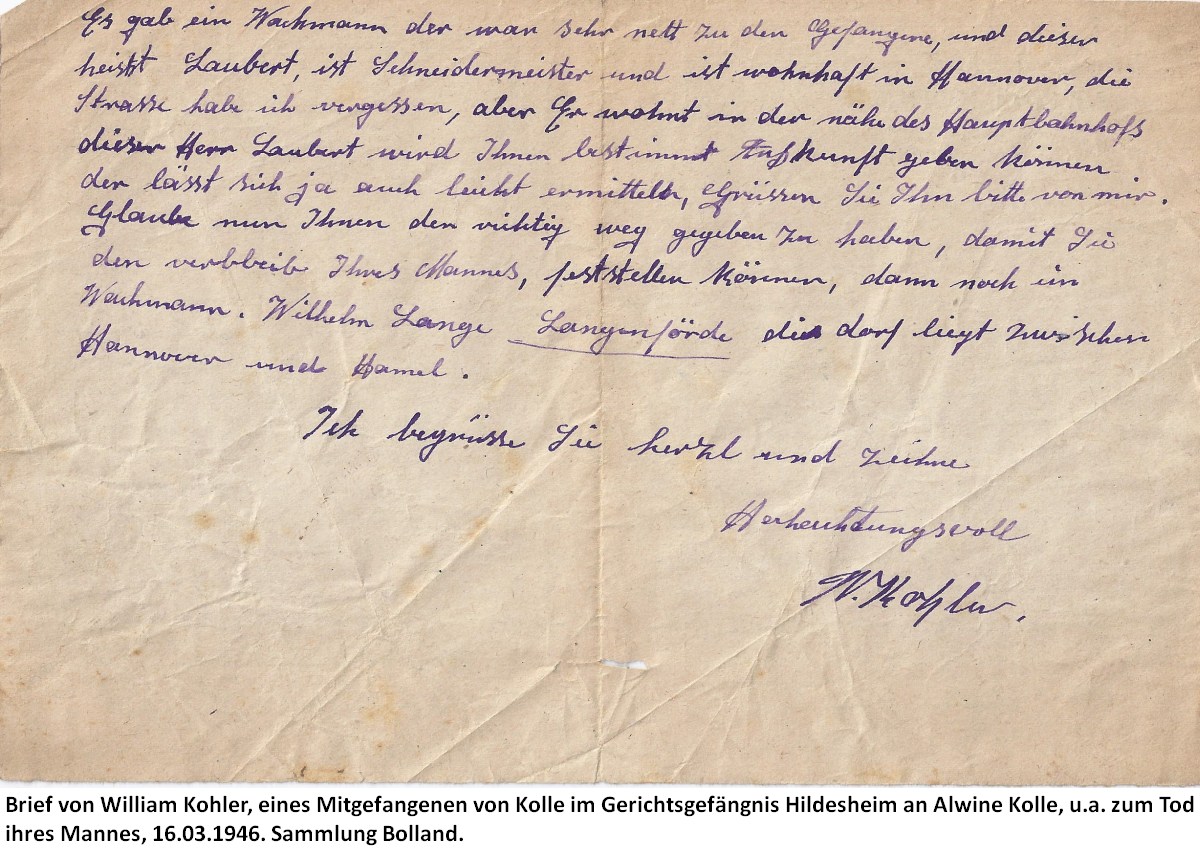 Es gab ein Wachmann der war sehr nett zu den Gefangene, und dieser
heisst Laubert, ist Schneidermeister und ist wohnhaft in Hannover, die
Strasse habe ich vergessen, aber Er wohnt in der nähe des Hauptbahnhofs
dieser Herr Laubert wird Ihnen bestimmt Auskunft geben können
der lässt sich ja auch leicht ermitteln, Grüssen Sie Ihn bitte von mir.
Glaube nun Ihnen den richtig weg gegeben zu haben, damit Sie
den verbleib Ihres Mannes, feststellen können, dann noch ein
Wachmann. Wilhelm Lange Langenförde dorf liegt zwischen
Hannover und Hamel.
Ich begrüsse Sie herzl und zeichne
W. Kohler.
Brief von William Kohler, eines Mitgefangenen von Kolle im Gerichtsgefängnis Hildesheim an Alwine Kolle, u.a. zum Tod
ihres Mannes, 16.03.1946. Sammlung Bolland.